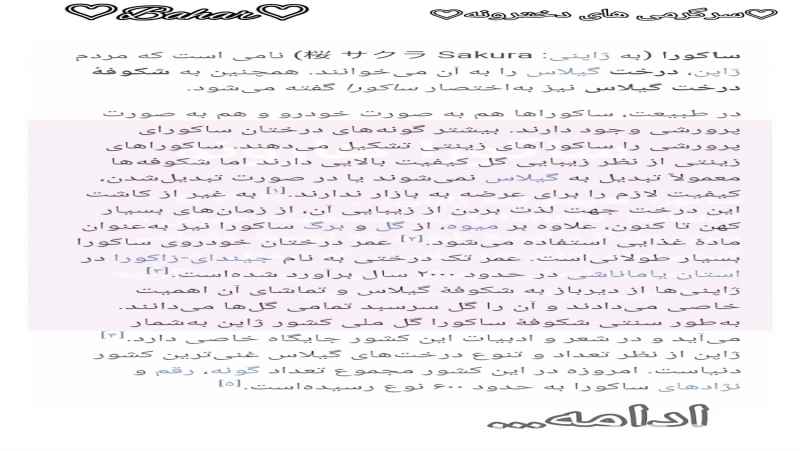 ♡سرگرمی های دخترونه♡
♡Bahar♡
ساکورا (به ژاپنی: 桜 サクラ Sakura) نامی است که مردم
ژاپن، درخت گیلاس را به آن می‌خوانند. همچنین به شکوفهٔ
درخت گیلاس نیز به‌اختصار ساکورا گفته می‌شود.
در طبیعت، ساکوراها هم به صورت خودرو و هم به صورت
پرورشی وجود دارند. بیشتر گونه‌های درختان ساکورای
پرورشی را ساکوراهای زینتی تشکیل می‌دهند. ساکوراهای
زینتی از نظر زیبایی گل کیفیت بالایی دارند اما شکوفه‌ها
معمولاً تبدیل به گیلاس نمی‌شوند یا در صورت تبدیل‌شدن،
کیفیت لازم را برای عرضه به بازار ندارند.[۱] به غیر از کاشت
این درخت جهت لذت بردن از زیبایی آن، از زمان‌های بسیار
کهن تا کنون، علاوه بر میوه، از گل و برگ ساکورا نیز به‌عنوان
مادهٔ غذایی استفاده می‌شود.[۲] عمر درختان خودروی ساکورا
بسیار طولانی‌است. عمر تک درختی به نام جیندای-زاکورا در
استان یاماناشی در حدود ۲۰۰۰ سال برآورد شده‌است.[۳]
ژاپنی‌ها از دیرباز به شکوفهٔ گیلاس و تماشای آن اهمیت
خاصی می‌دادند و آن را گل سرسبد تمامی گل‌ها می‌دانند.
به‌طور سنتی شکوفهٔ ساکورا گل ملی کشور ژاپن به‌شمار
می‌آید و در شعر و ادبیات این کشور جایگاه خاصی دارد.[۴]
ژاپن از نظر تعداد و تنوع درخت‌های گیلاس غنی‌ترین کشور
دنیاست. امروزه در این کشور مجموع تعداد گونه، رقم و
نژادهای ساکورا به حدود ۶۰۰ نوع رسیده‌است.[۵]
ادامه...